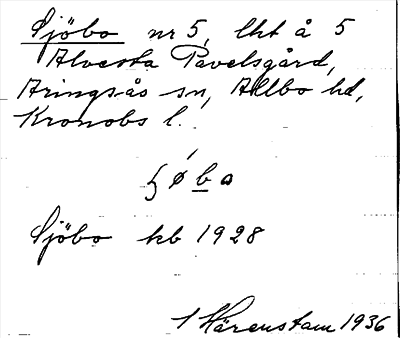 Sjöbo nr 5, lht å 5
Alvesta Pavelsgård,
Aringsås sn, Allbo hd,
Kronobs l.
Sjöbo kb 1928
1 Härenstam 1936